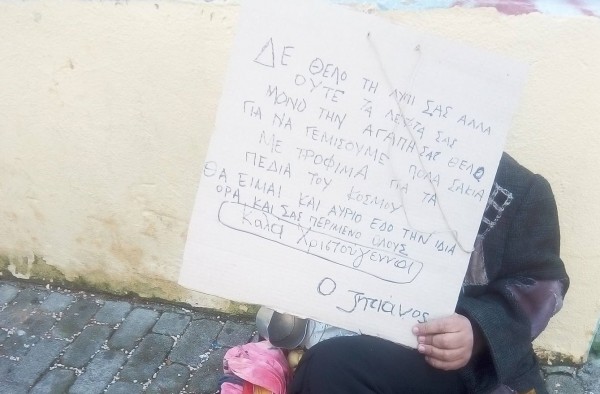 ΔΕ ΘΕΛΟ ΤΗ ΛΥΠΙ ΣΑΣ ΑΛΛΑ
ΟΥΤΕ ΤΑ ΛΕΦΤΑ ΣΑΣ
ΜΟΝΟ ΤΗΝ ΑΓΑΠΗ ΣΑΣ ΘΕΛΟ
ΓΙΑ ΝΑ ΓΕΜΙΣΟΥΜΕ ΠΟΛΑ ΣΑΚΙΑ
ΜΕ ΤΡΟΦΙΜΑ ΓΙΑ ΤΑ
ΠΕΔΙΑ ΤΟΥ ΚΟΣΜΟΥ
ΘΑ ΕΙΜΑΙ ΚΑΙ ΑΥΡΙΟ ΕΔΟ ΤΗΝ ΙΔΙΑ
ΟΡΑ ΚΑΙ ΣΑΣ ΠΕΡΙΜΕΝΟ ΟΛΟΥΣ
Καλα Χριστουγεννα
Ο Ζητιανος